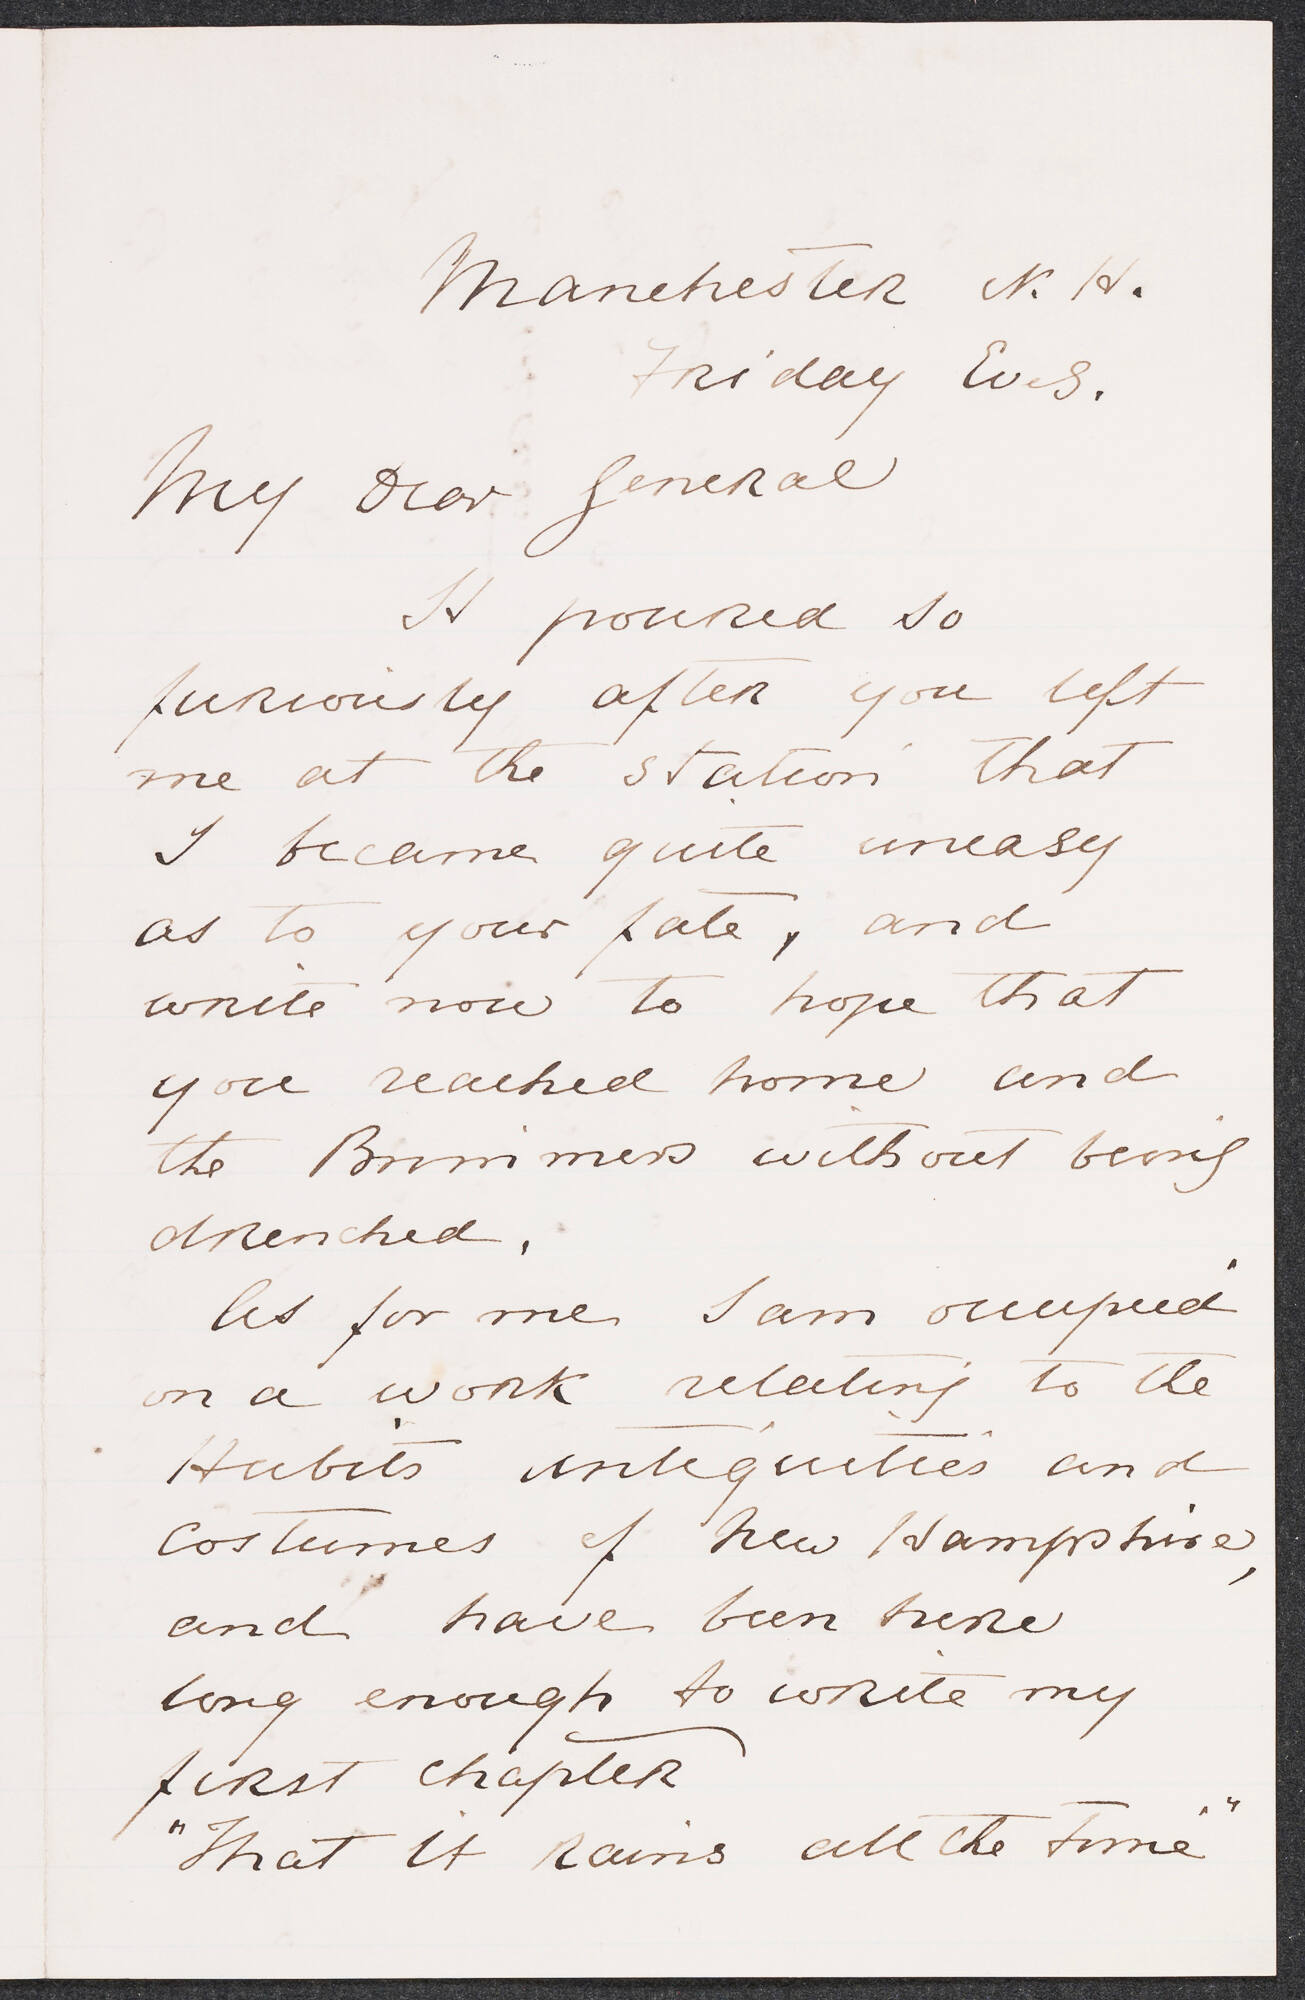 Manchester N. H.
Friday Eve.
My Dear General
It poured so
furiously after you left
me at the station that
I became quite uneasy
as to your fate, and
write now to hope that
you reached home and
the Brimmers without being
drenched.
As for me I am occupied
on a work relating to the
Habits antiquities and
costumes of New Hampshire,
and have been here
long enough to write my
first chapter
"That it rains all the time"